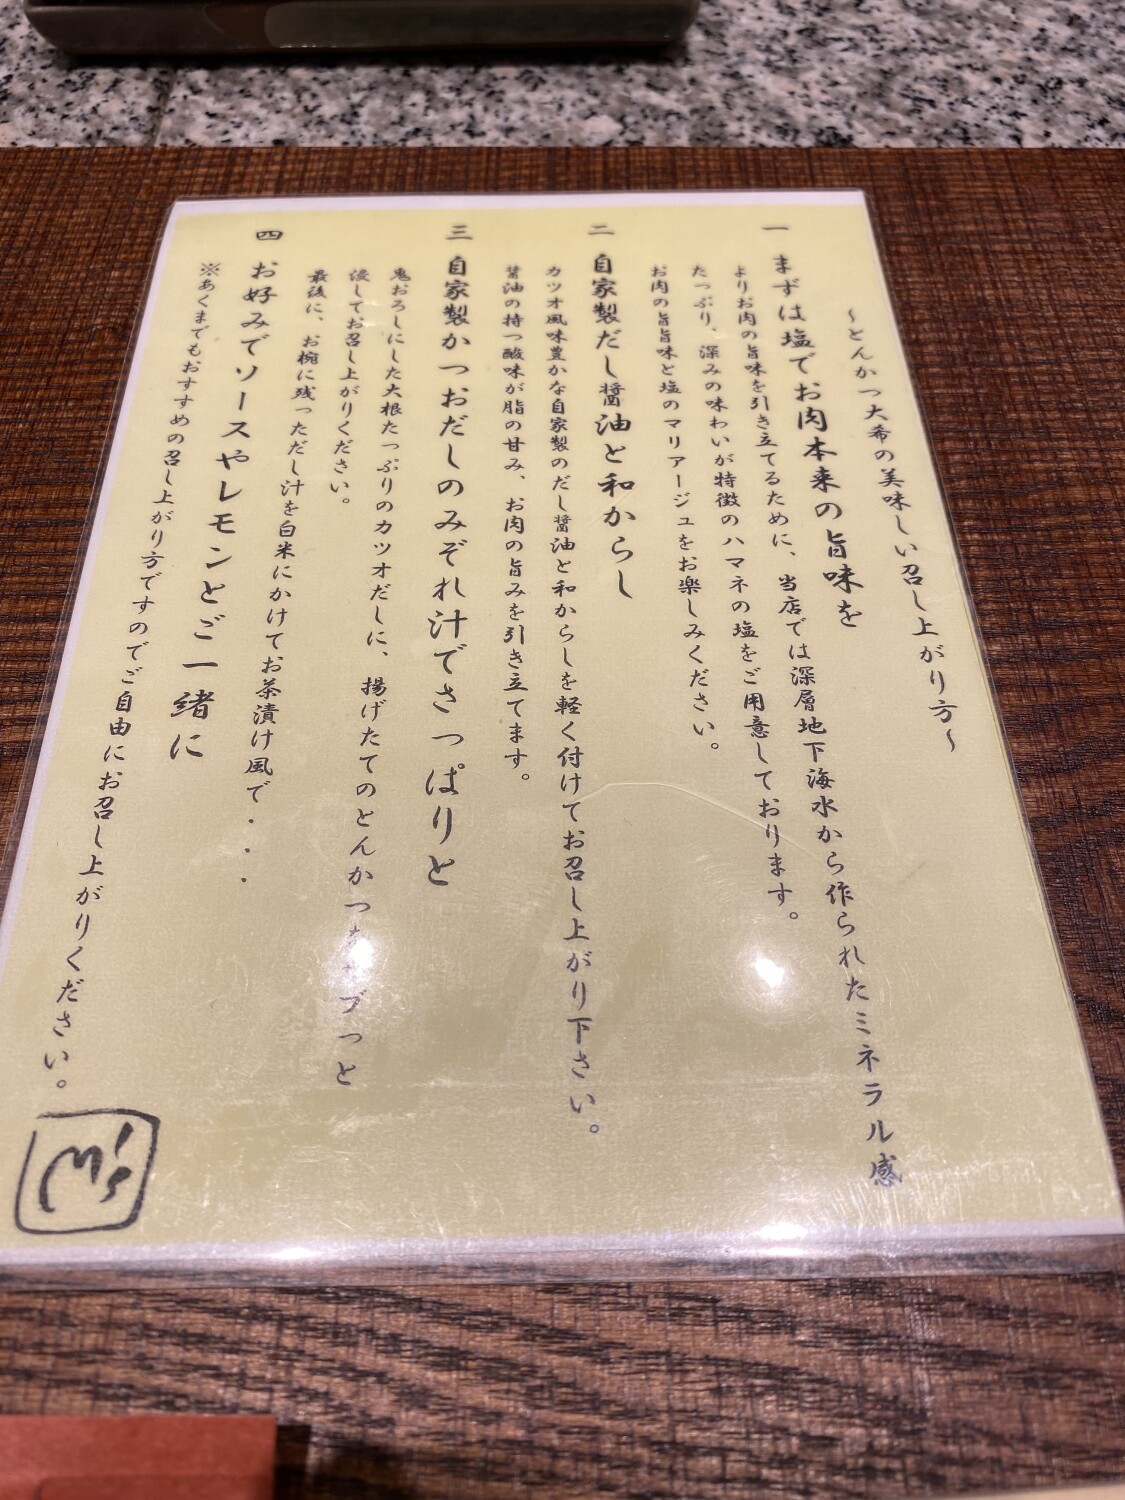 ～とんかつ大希の美味しい召し上がり方～
一 まずは塩でお肉本来の旨味を
よりお肉の旨味を引き立てるために、当店では深層地下海水から作られたミネラル感
たっぷり、深みの味わいが特徴のハマネの塩をご用意しております。
お肉の旨旨味と塩のマリアージュをお楽しみください。
二 自家製だし醤油と和からし
カツオ風味豊かな自家製のだし醤油と和からしを軽く付けてお召し上がり下さい。
醤油の持つ酸味が脂の甘み、お肉の旨みを引き立てます。
三 自家製かつおだしのみぞれ汁でさっぱりと
鬼おろしにした大根たっぷりのカツオだしに、揚げたてのとんかつをザブっと
浸してお召し上がりください。
最後に、お椀に残っただし汁を白米にかけてお茶漬け風で・・・
四 お好みでソースやレモンとご一緒に
※あくまでもおすすめの召し上がり方ですのでご自由にお召し上がりください。
M's